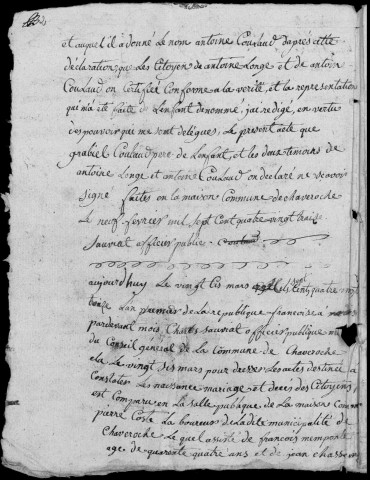 et auquel il a donné le nom antoine Coulaud daprès cette
déclaration que les Citoyen de antoine Longe et de antoin
Coulaud on certifier Conforme a la verité, et la representation
qui ma été faite de Lenfant denommé, jai redigé, en vertu
des pouvoir que me sont delegues, Le present acte que
grabiel Coulaud pere de Lenfant, et les deux temoins de
antoine Longe et antoine Coulaud on declare ne scavoir
signé faites on la maison Commune de chaveroche
Le neuf fevrier mil sept Cent quatre vingt treize
Sauviat officier public
aujourdhuy Le vingt sis mars mil sept Cent quatre vingt
treize Lan premier de la republique francoise a nous
pardevant mois Charles Sauviat officier publique
du Conseil général de la Commune de Chaveroche
ela Le vingt sis mars pour dresser Les actes destinée a
Constater Les naissance mariage et deces des Citoyens
est Comparu en La salle publique de La maison Commune
pierre Coste La boureur de Ladite municipalité de
Chaveroche Le quel assisté de francois
age de quarente quatre ans et de jean